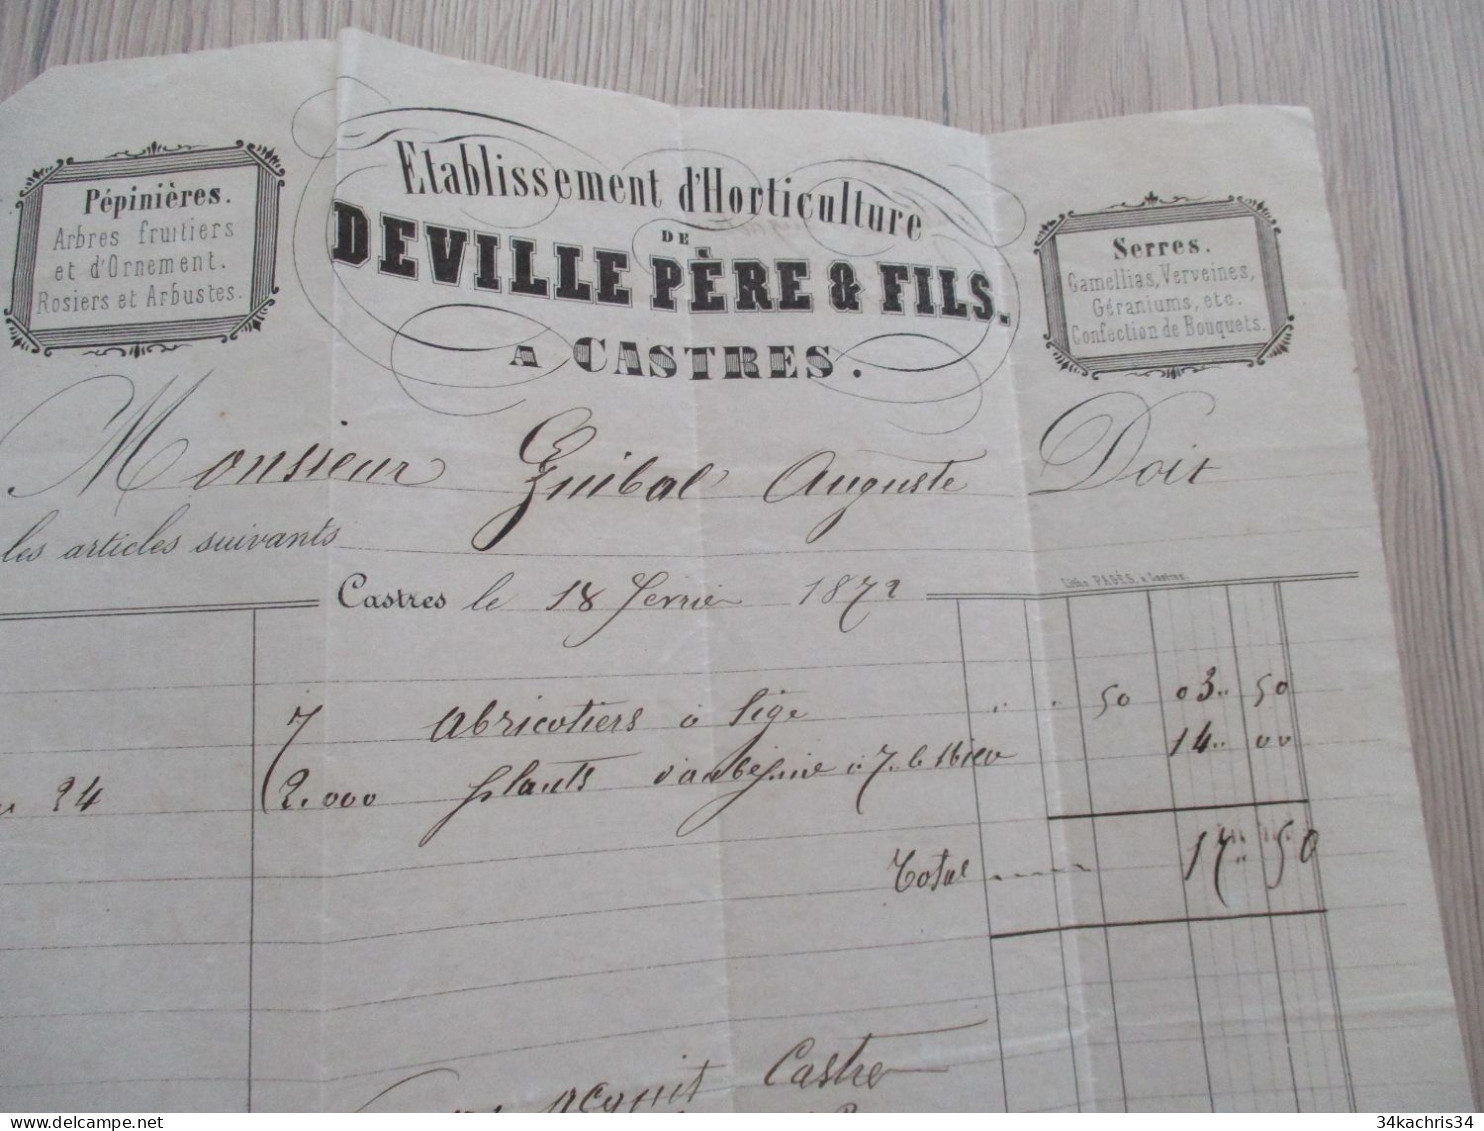 Etablissement d'Horticulture
DE
DEVILLE PÈRE & FILS.
A CASTRES.
Pépinières.
Arbres fruitiers
et d'Ornement.
Rosiers et Arbustes.
Serres.
Gamellias, Verveines,
Géraniums, etc.
Confection de Bouquets.
Monsieur Guibal Auguste Doit
les articles suivants
Lith. PAGÈS, à Castres
Castres le 18 février 1872
7 abricotiers à tige " " 50 03 " 50
24 2.000 plants d'aubépine à 7 " le Mille 14 " 00
Total 17 " 50
acquit Castre
34kachris34